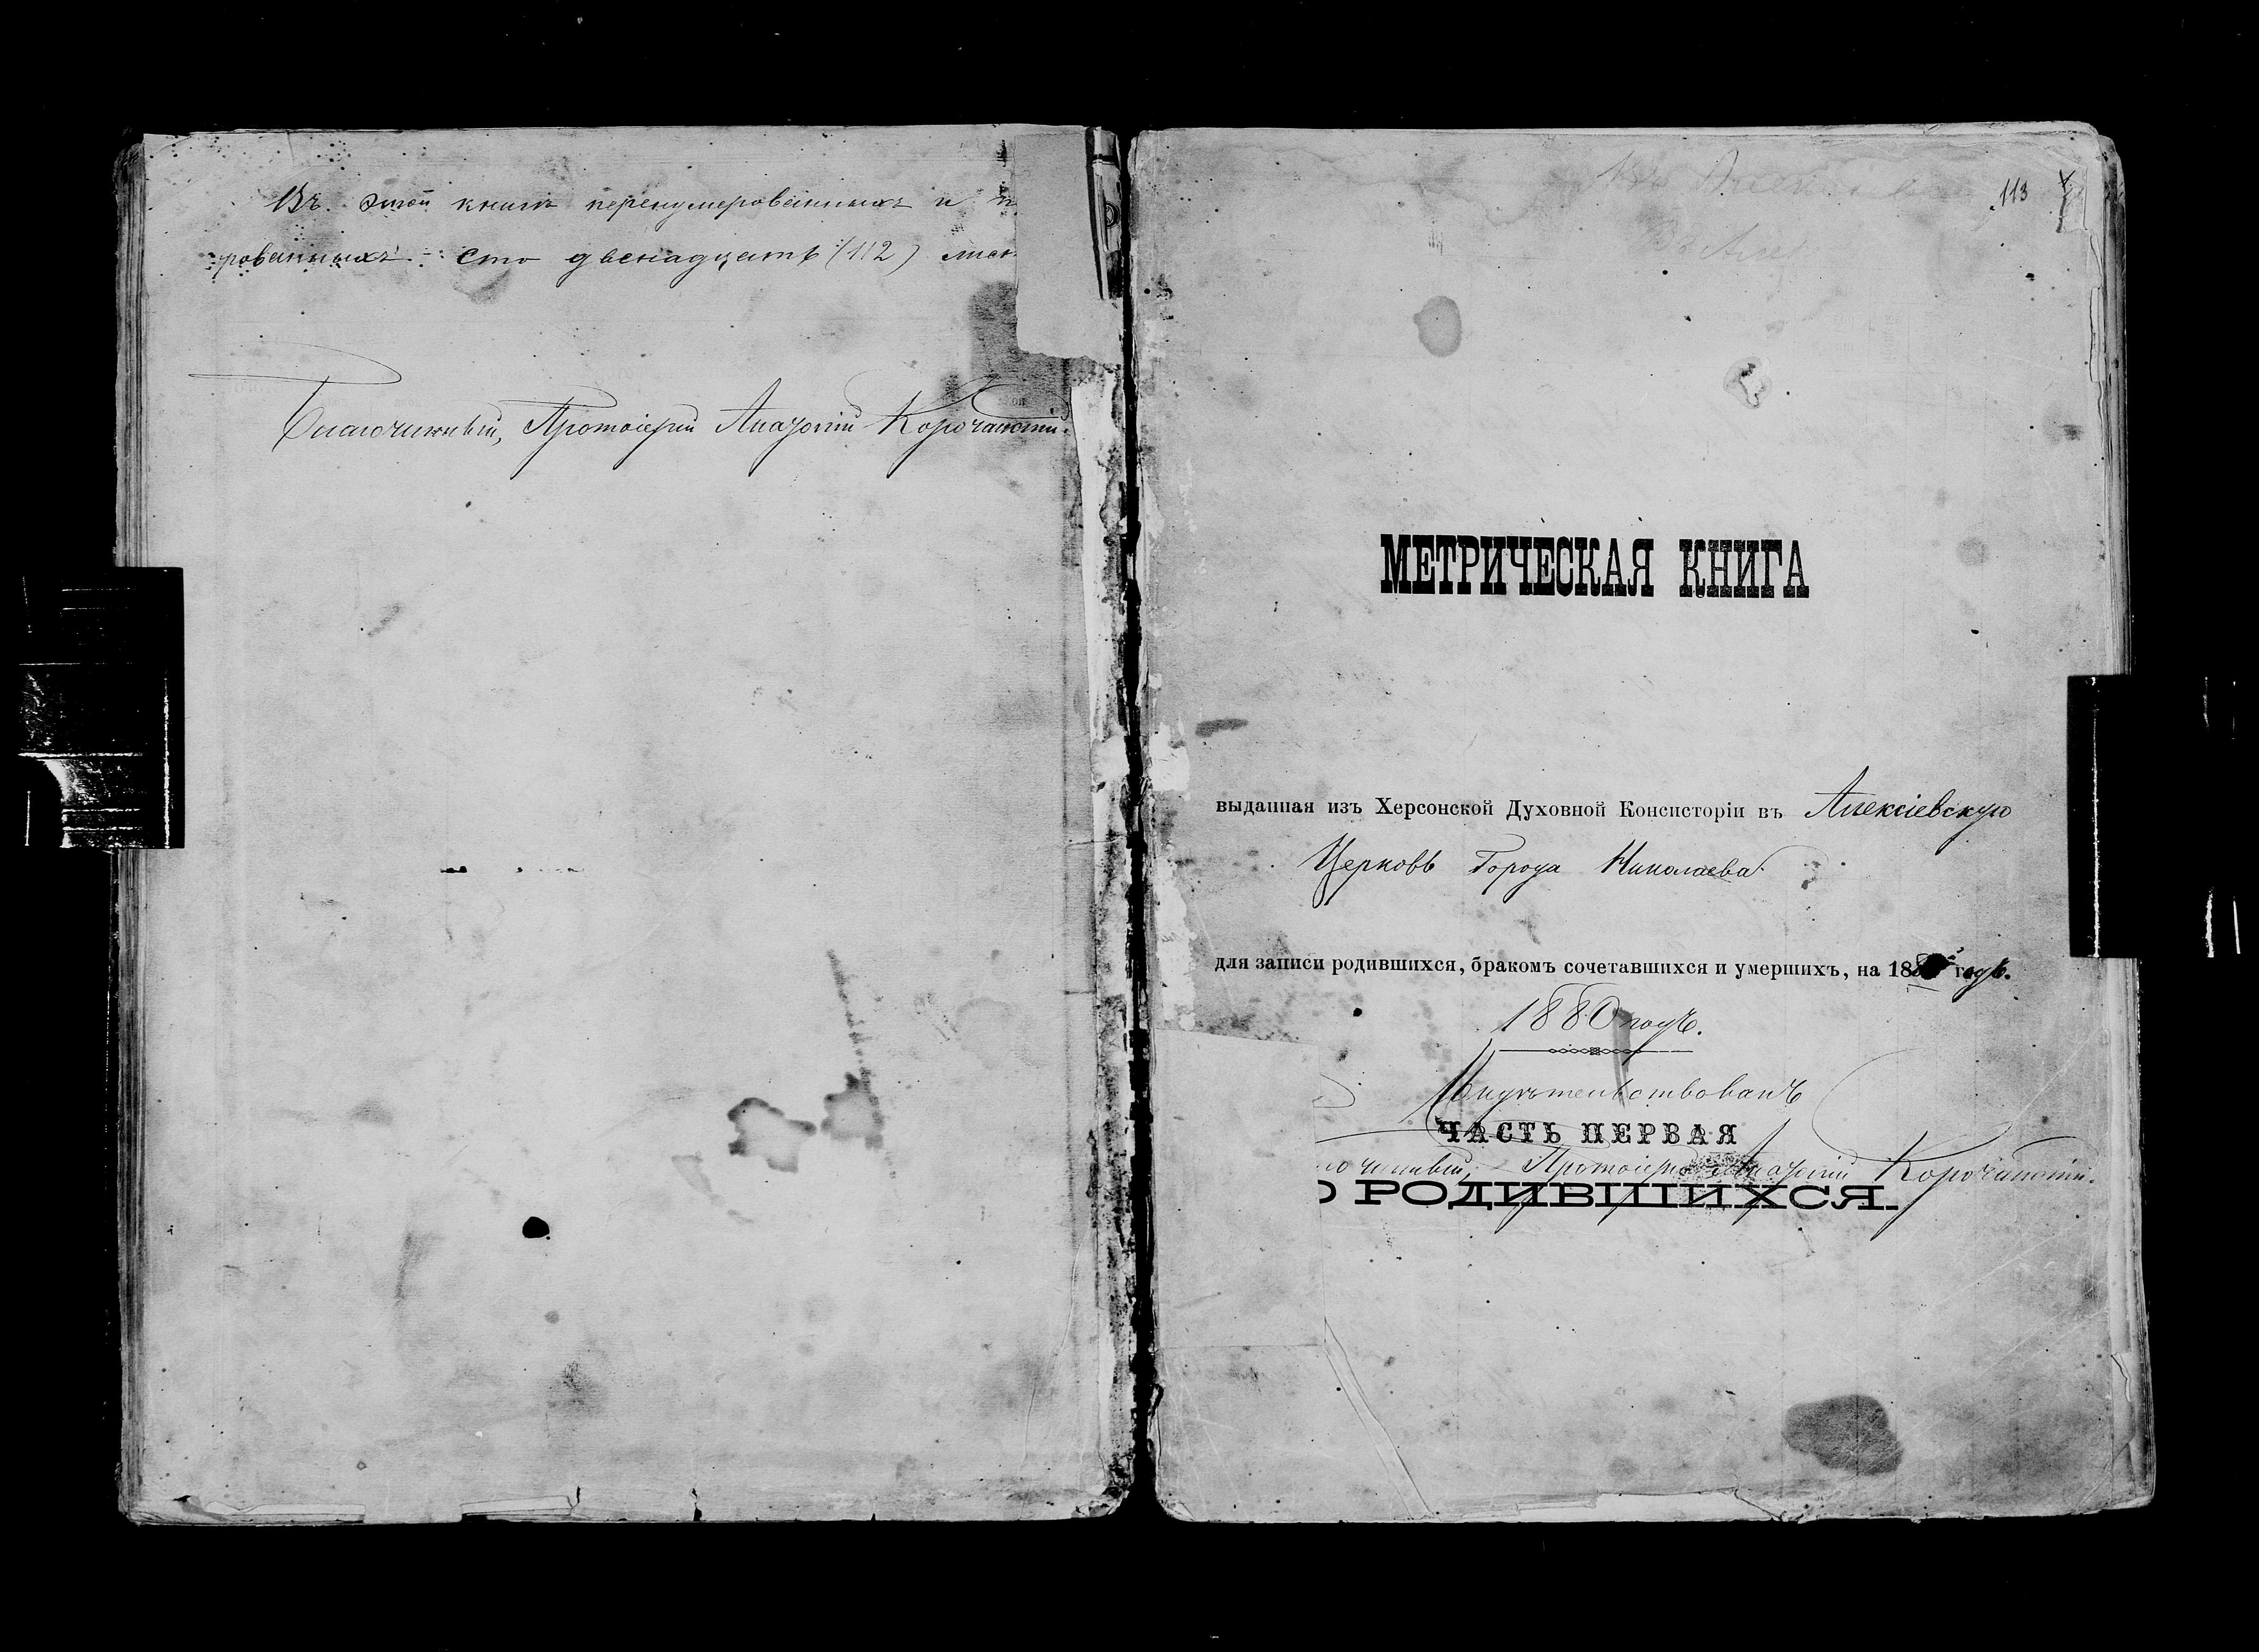 Въ этой книгѣ перенумерованныхъ и
рованныхъ сто двенадцать (112)
Благочинный, Протоіерей Анатолій Корочанскій.
113
МЕТРИЧЕСКАЯ КНИГА
выданная изъ Херсонской Духовной Консисторіи въ Алексіевскую
Церковь Города Николаева
для записи родившихся, бракомъ сочетавшихся и умершихъ, на 18 годъ.
1880 годъ.
ЧАСТЬ ПЕРВАЯ
Протоіерей Анатолій Корочанскій.
О РОДИВШИХСЯ.